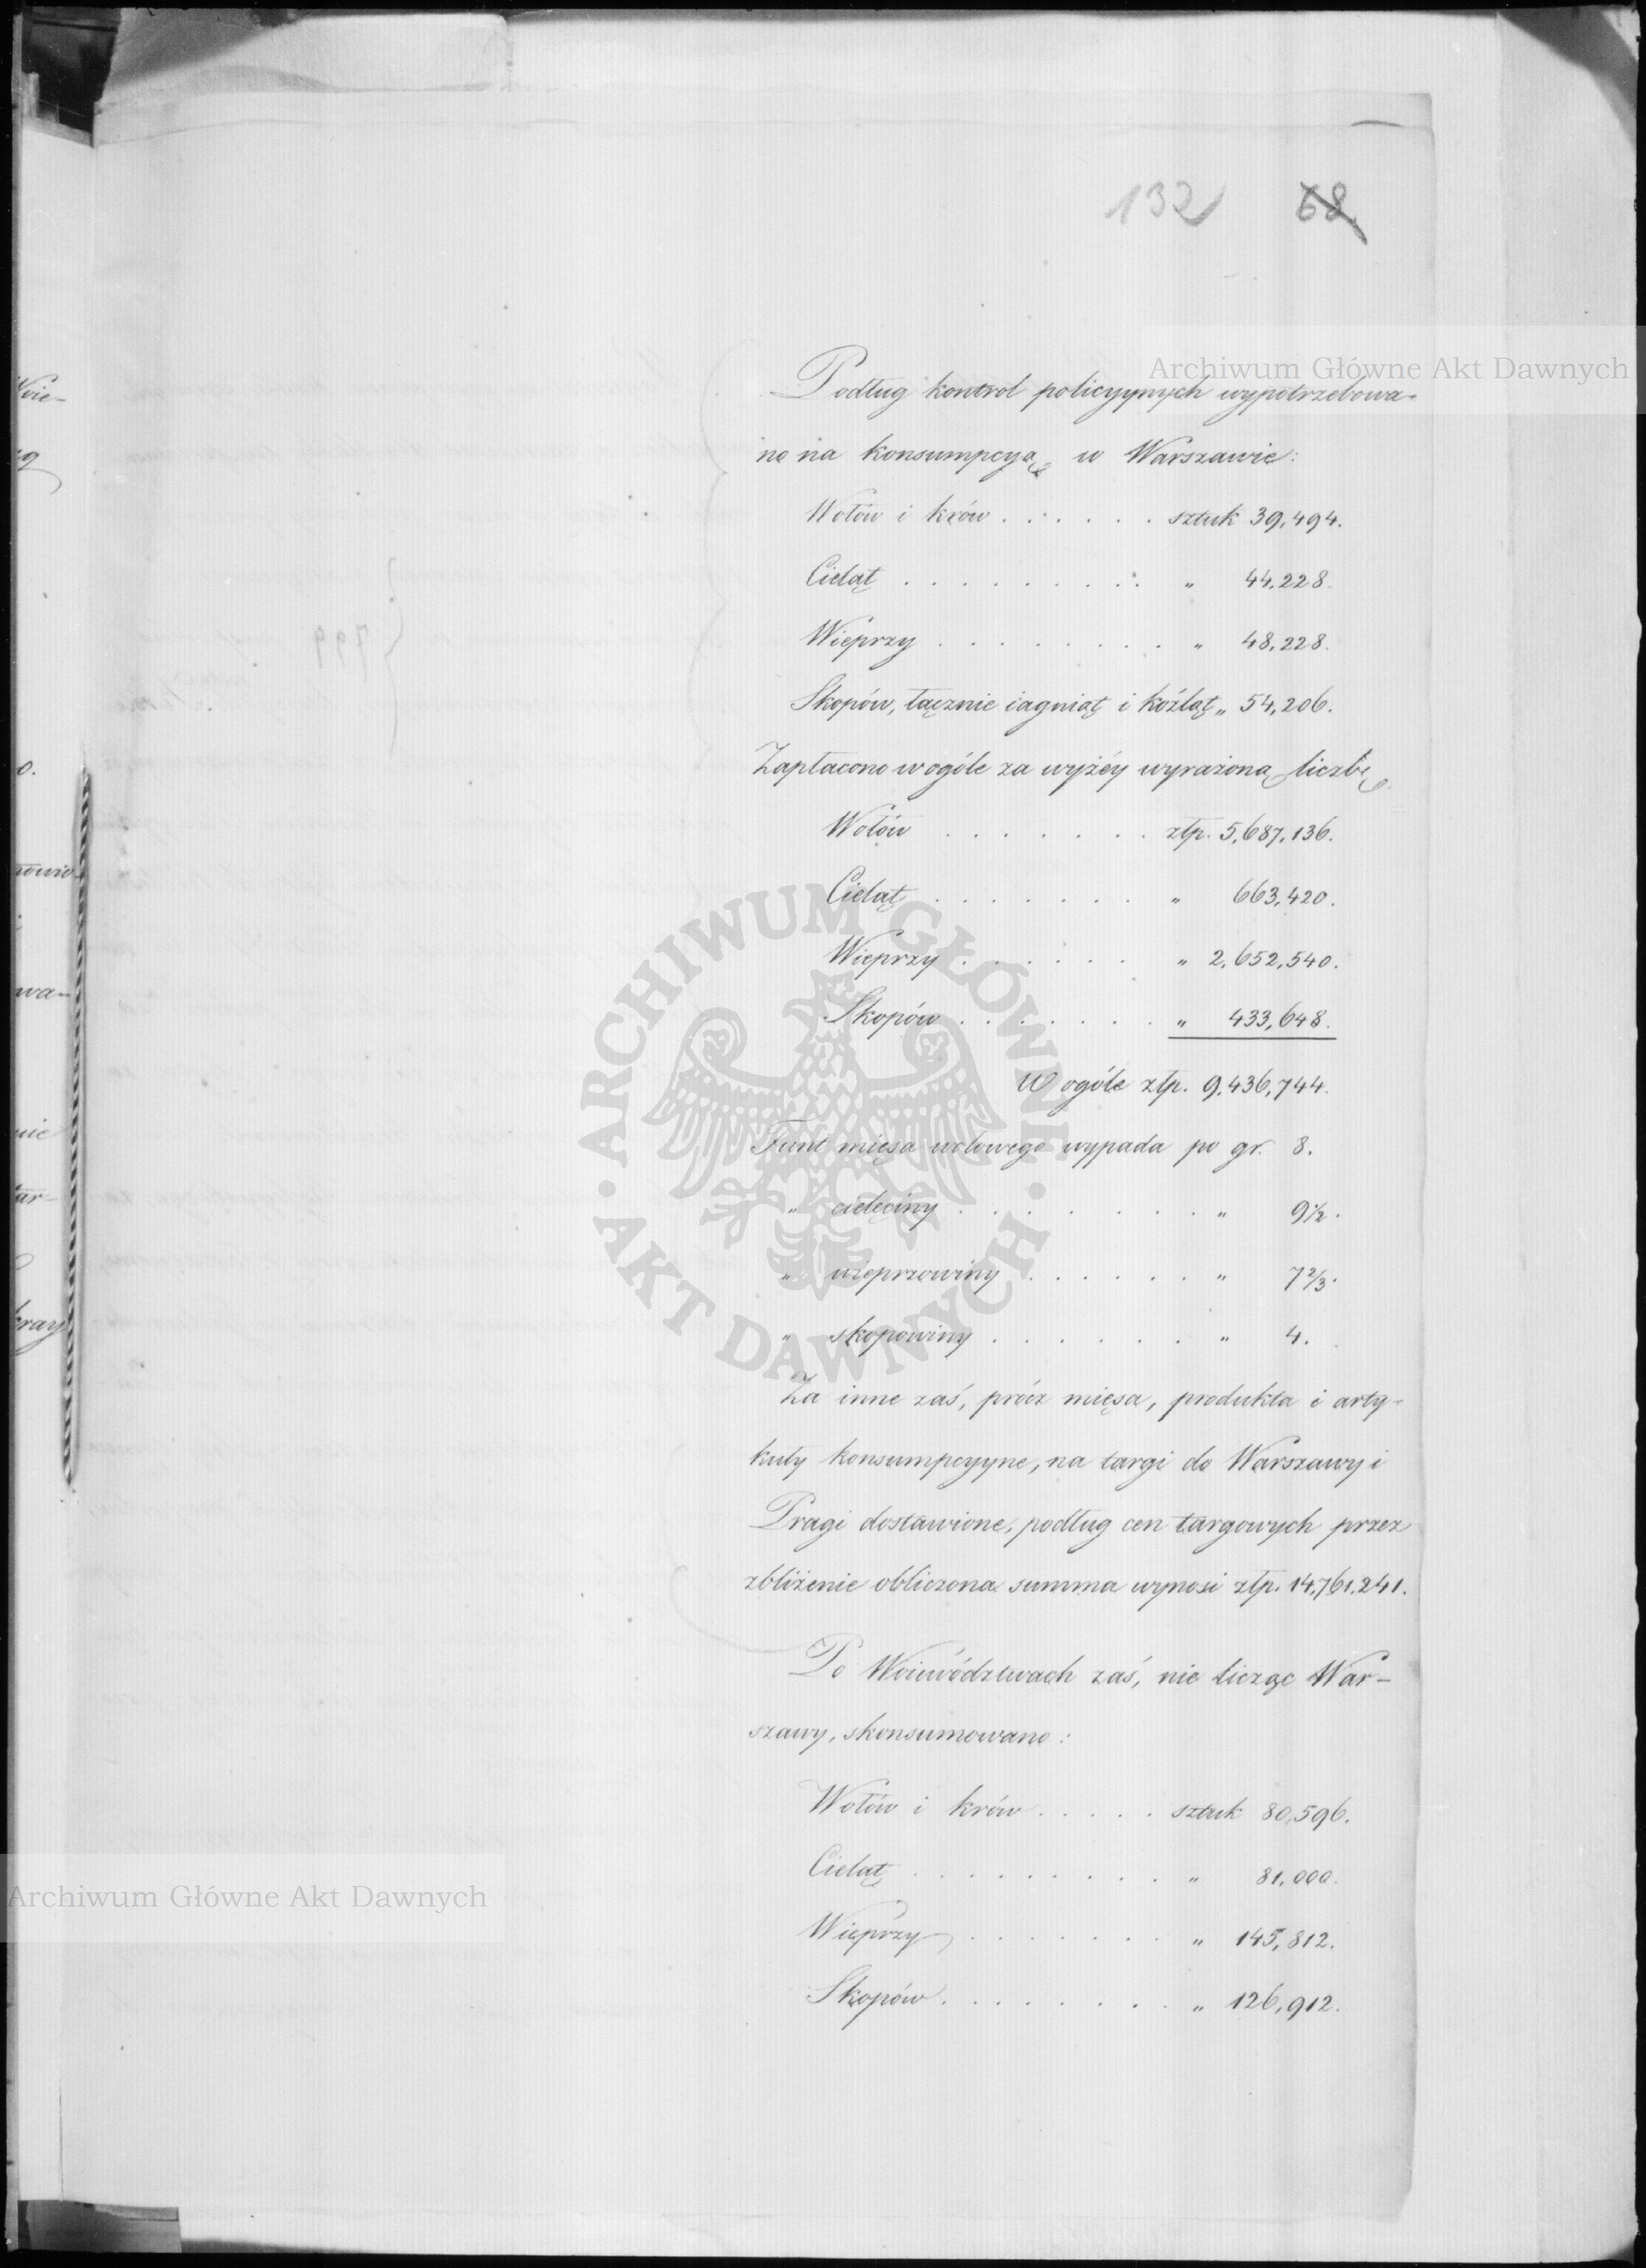 132 68.
Archiwum Główne Akt Dawnych
Podług kontrol policyynych wypotrzebowa-
no na konsumpcyą w Warszawie:
Wołów i krów . . . . . . sztuk 39,494.
Cieląt . . . . . . . . . „ 44,228.
Wieprzy . . . . . . . . „ 48,228.
Skopów, łącznie iagniąt i koźląt „ 54,206.
Zapłacono w ogóle za wyżéy wyrażoną liczbę
Wołów . . . . . . . złp. 5,687,136.
Cieląt . . . . . . . „ 663,420.
Wieprzy . . . . . . „ 2,652,540.
Skopów . . . . . . . „ 433,648.
W ogóle złp. 9,436,744.
Funt mięsa wołowego wypada po gr. 8.
„ cielęciny . . . . . . . . „ 9½.
„ wieprzowiny . . . . . . „ 7⅔.
„ skopowiny . . . . . . . „ 4.
Za inne zaś, prócz mięsa, produkta i arty-
kuły konsumpcyyne, na targi do Warszawy i
Pragi dostawione, podług cen targowych przez
zbliżenie obliczona summa wynosi złp. 14,761,241.
Po Woiewództwach zaś, nie licząc War-
szawy, skonsumowano:
Wołów i krów . . . . . sztuk 80,596.
Cieląt . . . . . . . . . „ 81,000.
Wieprzy . . . . . . . „ 145,812.
Skopów . . . . . . . . „ 126,912.
ARCHIWUM GŁÓWNE AKT DAWNYCH
Archiwum Główne Akt Dawnych